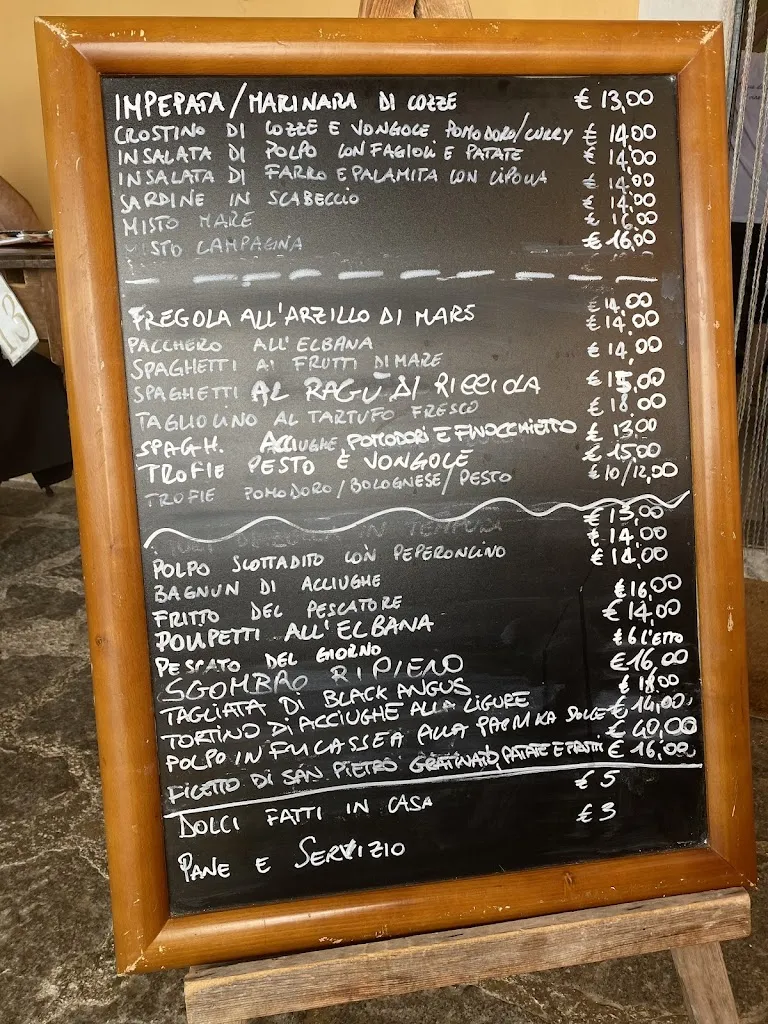 IMPEPATA/MARINARA DI COZZE € 13,00
CROSTINO DI COZZE E VONGOLE POMODORO/CURRY € 14,00
INSALATA DI POLPO CON FAGIOLI E PATATE € 14,00
INSALATA DI FARRO E PALAMITA CON CIPOLLA € 14,00
SARDINE IN SCABECCIO € 14,00
MISTO MARE € 16,00
MISTO CAMPAGNA € 16,00
FREGOLA ALL'ARZILLO DI MARE € 14,00
PACCHERO ALL'ELBANA € 14,00
SPAGHETTI AI FRUTTI DI MARE € 14,00
SPAGHETTI AL RAGÙ DI RICCIOLA € 15,00
TAGLIOLINO AL TARTUFO FRESCO € 18,00
SPAGH. ACCIUGHE POMODORI E FINOCCHIETTO € 13,00
TROFIE PESTO E VONGOLE € 15,00
TROFIE POMODORO/BOLOGNESE/PESTO € 10/12,00
IN TEMPURA € 13,00
POLPO SCOTTADITO CON PEPERONCINO € 14,00
BAGNUN DI ACCIUGHE € 14,00
FRITTO DEL PESCATORE € 16,00
POLPETTI ALL'ELBANA € 14,00
PESCATO DEL GIORNO € 6 L'ETTO
SGOMBRO RIPIENO € 16,00
TAGLIATA DI BLACK ANGUS € 18,00
TORTINO DI ACCIUGHE ALLA LIGURE € 14,00
POLPO IN FUCASSEA ALLA PAPRIKA DOLCE € 40,00
FILETTO DI SAN PIETRO GRATINATO, PATATE E FRUTTI € 16,00
DOLCI FATTI IN CASA € 5
PANE E SERVIZIO € 3